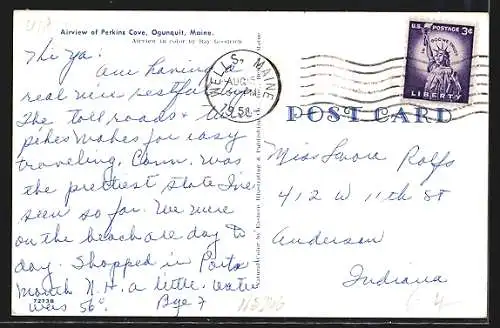 Airview of Perkins Cove, Ogunquit, Maine.
Airview in color by Ray Goodrich
Hi Ya:
Am having a
real nice restful
The toll roads &
pikes makes for easy
traveling. Conn. was
the prettiest state I've
seen so far. We were
on the beach all day to
day. Shopped in Ports
mouth N.H. a little. water
was 56°. Bye
72738
WELLS, MAINE
AUG
1958
U.S. POSTAGE 3¢
IN GOD WE TRUST
LIBERTY
POST CARD
Miss Lenore Rolfs
412 W 11th St
Anderson
Indiana